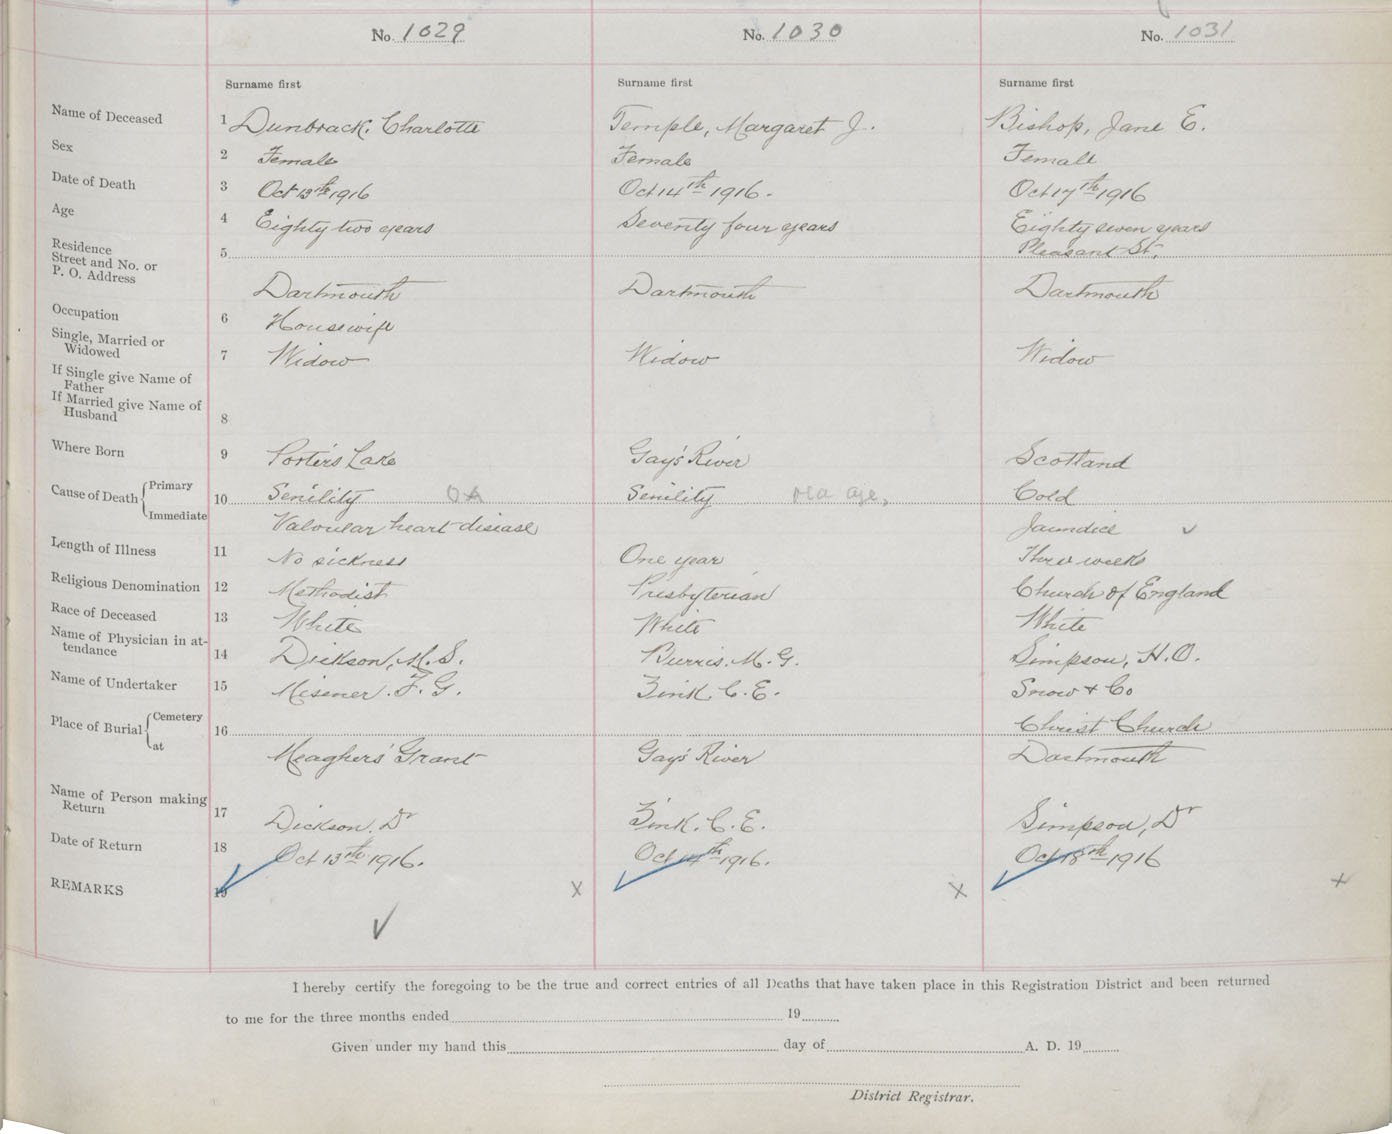 No. 1029 No. 1030 No. 1031
Surname first Surname first Surname first
Name of Deceased 1 Dunbrack, Charlotte Temple, Margaret J. Bishop, Jane E.
Sex 2 Female Female Female
Date of Death 3 Oct 13th 1916 Oct 14th 1916. Oct 17th 1916
Age 4 Eighty two years Seventy four years Eighty seven years
Residence
Street and No. or 5 Pleasant St.
P. O. Address Dartmouth Dartmouth Dartmouth
Occupation 6 Housewife
Single, Married or
Widowed 7 Widow Widow Widow
If Single give Name of
Father
If Married give Name of
Husband 8
Where Born 9 Porter's Lake Gay's River Scotland
Cause of Death Primary 10 Senility OA Senility old age, Cold
Immediate Valvular heart disease Jaundice
Length of Illness 11 No sickness One year Three weeks
Religious Denomination 12 Methodist Presbyterian Church of England
Race of Deceased 13 White White White
Name of Physician in at-
tendance 14 Dickson, M.S. Burris. M.G. Simpson, H.O.
Name of Undertaker 15 Misener. F.G. Zink. C.E. Snow & Co
Place of Burial Cemetery 16 Christ Church
at Meagher's Grant Gay's River Dartmouth
Name of Person making
Return 17 Dickson. Dr Zink. C.E. Simpson, Dr
Date of Return 18 Oct 13th 1916. Oct 14th 1916. Oct 18th 1916
REMARKS 19 X X X
I hereby certify the foregoing to be the true and correct entries of all Deaths that have taken place in this Registration District and been returned
to me for the three months ended 19
Given under my hand this day of A. D. 19
District Registrar.